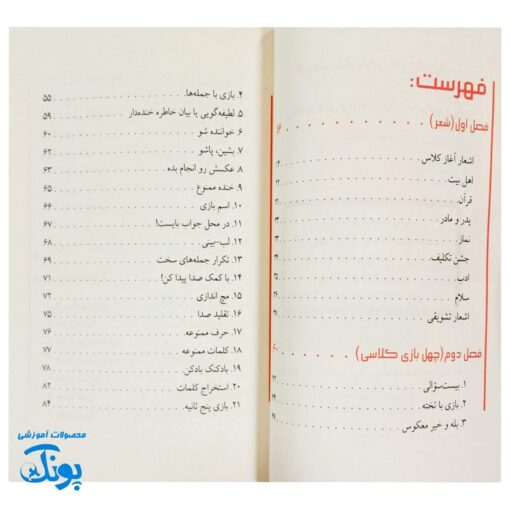 فهرست:
فصل اول (شعر)
اشعار آغاز کلاس
اهل بیت
قرآن
پدر و مادر
نماز
جشن تکلیف
ادب
سلام
اشعار تشویقی
فصل دوم (چهل بازی کلاسی)
۱. بیست‌سؤالی
۲. بازی با تخته
۳. بله و خیر معکوس
۴. بازی با جمله‌ها ۵۵
۵. لطیفه‌گویی یا بیان خاطره خنده‌دار ۵۹
۶. خواننده شو ۶۰
۷. بشین، پاشو ۶۲
۸. عکسش رو انجام بده ۶۳
۹. خنده ممنوع ۶۵
۱۰. اسم بازی ۶۶
۱۱. در محل جواب بایست! ۶۷
۱۲. لب-بینی ۶۸
۱۳. تکرار جمله‌های سخت ۶۹
۱۴. با کمک صدا پیدا کن! ۷۱
۱۵. مچ اندازی ۷۲
۱۶. تقلید صدا ۷۵
۱۷. حرف ممنوعه ۷۶
۱۸. کلمات ممنوعه ۷۷
۱۹. بادکنک بادکن ۷۸
۲۰. استخراج کلمات ۸۲
۲۱. بازی پنج ثانیه ۸۴
محصولات آموزشی
پونک